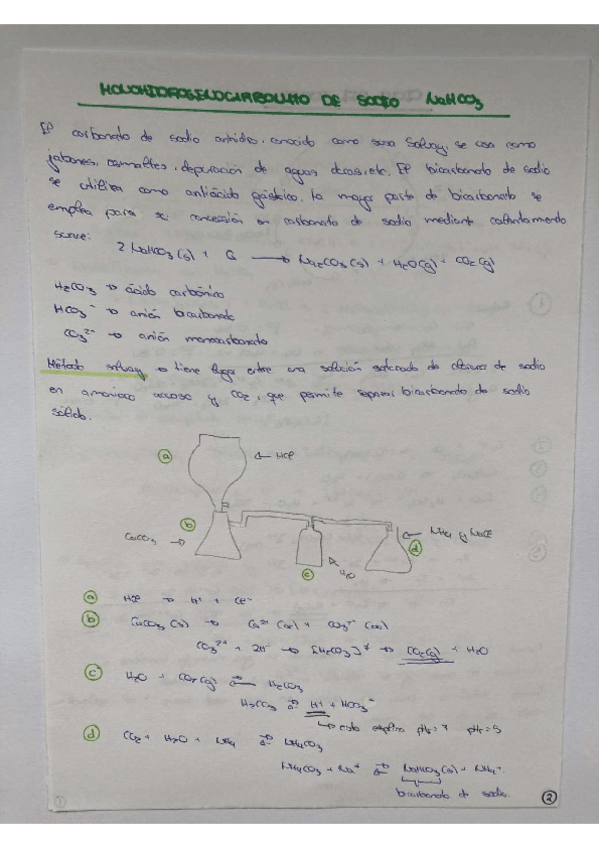 MONOHIDROGENOCARBONATO DE SODIO NaHCO3
El carbonato de sodio anhidro, conocido como sosa Solvay, se usa como
jabones, esmaltes, depuración de aguas duras, etc. El bicarbonato de sodio
se utiliza como antiácido gástrico. La mayor parte de bicarbonato se
emplea para su en carbonato de sodio mediante calentamiento
suave:
2 NaHCO3 (s) + Q → Na2CO3 (s) + H2O(g) + CO2 (g)
H2CO3 → ácido carbónico
HCO3⁻ → anión bicarbonato
CO3²⁻ → anión monocarbonato
Método solvay → tiene lugar entre una solución saturada de cloruro de sodio
en amoniaco acuoso y CO2, que permite separar bicarbonato de sodio
sólido.
a ← HCl
b CaCO3 →
← NH4 y NaCl
d
c H2O
a HCl → H⁺ + Cl⁻
b CaCO3 (s) → Ca²⁺ (ac) + CO3²⁻ (ac)
+ 2H⁺ → [H2CO3]* → CO2(g) + H2O
c H2O + CO2 (g) ⇌ H2CO3
H2CO3 ⇌ H⁺ + HCO3⁻
↳ esto explica = 7 = 5
d CO2 + H2O + ⇌ NH4CO3
NH4CO3 + Na⁺ ⇌ NaHCO3 (s) + NH4⁺
bicarbonato de sodio.
2